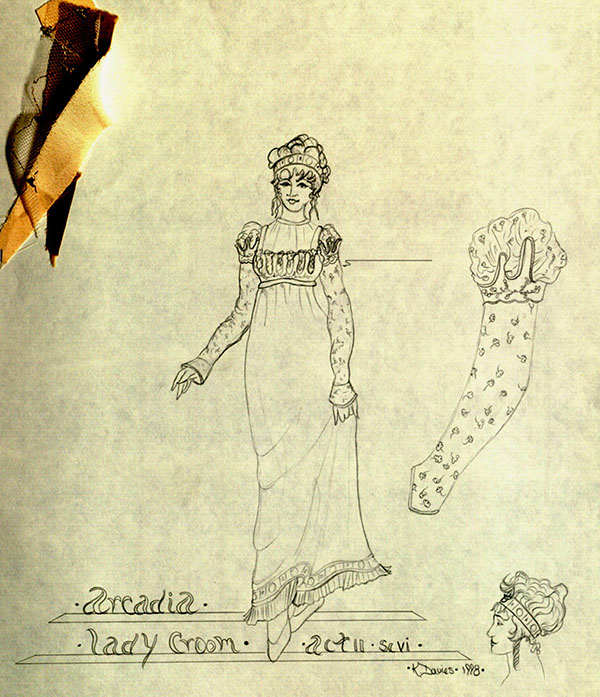 · arcadia ·
· lady Croom · · act II · sc vi ·
· K. Davies · 1998 ·